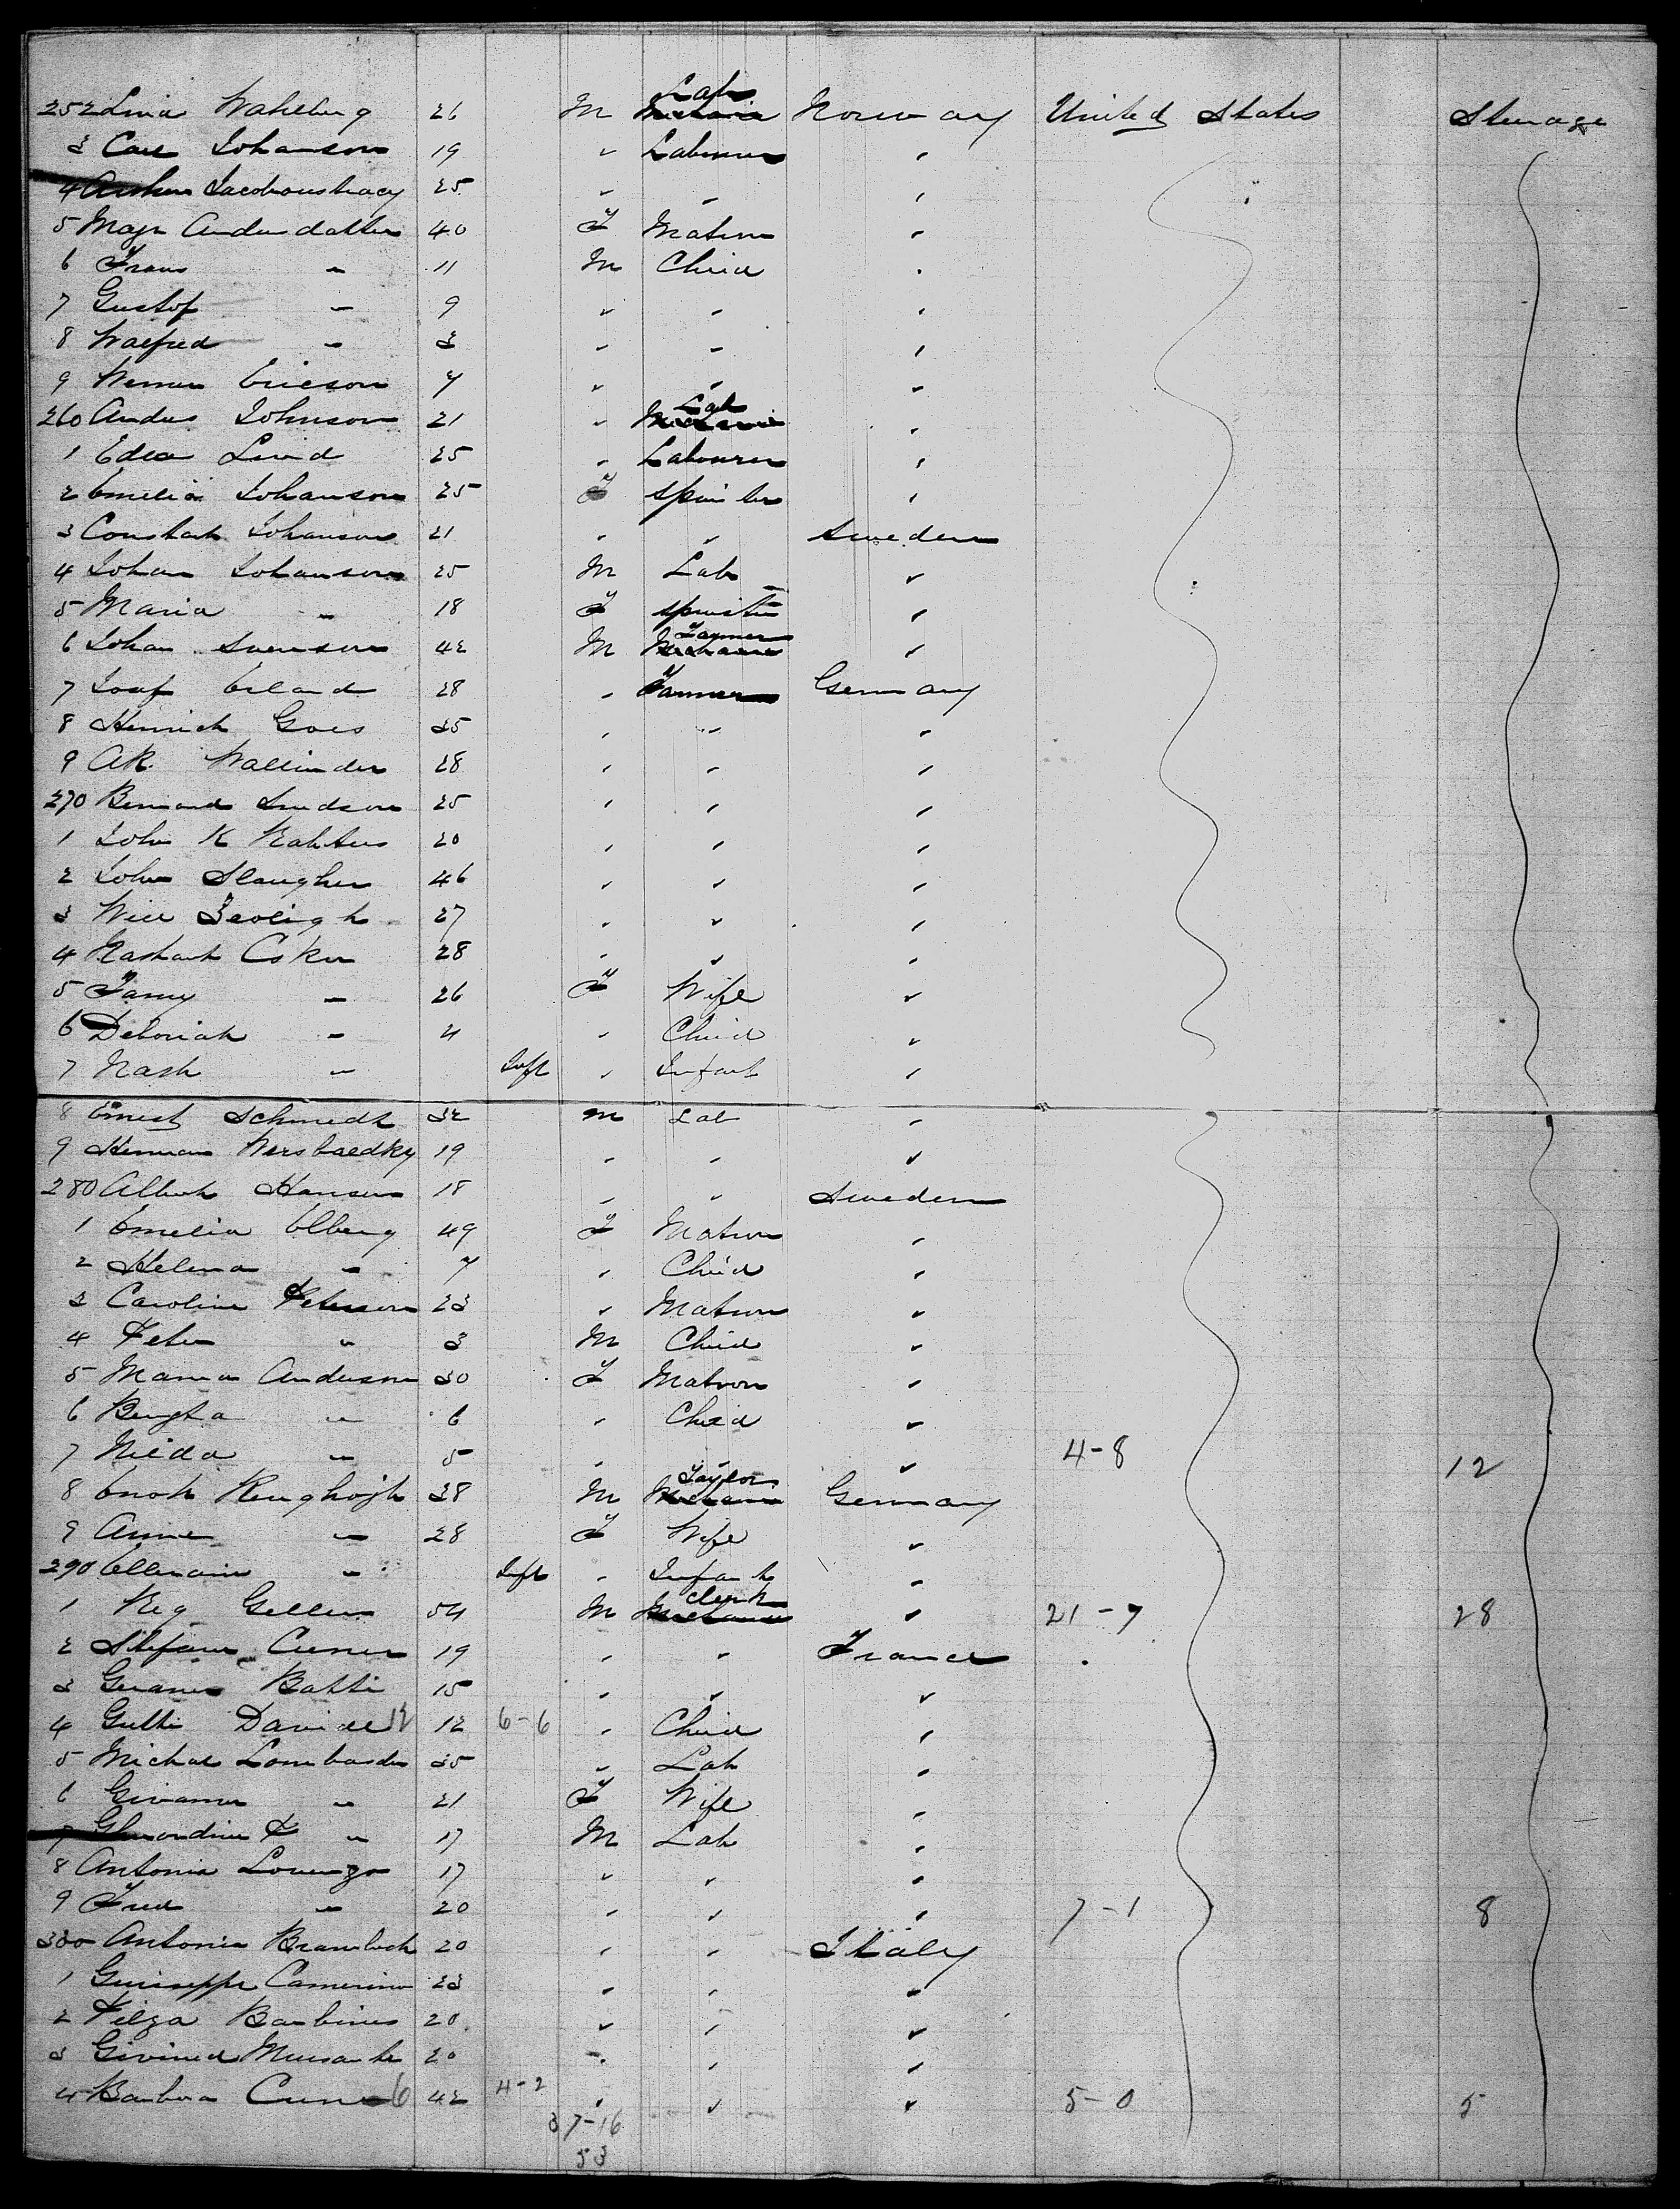 252 Lina Wahlberg 26 M Lab Mechanic Norway United States Steerage
3 Carl Johanson 19 " Labourer "
4 Arthur Jacoboustracy 25 " " "
5 Maja Andersdatter 40 F Matron "
6 Frans " 11 M Child "
7 Gustof " 9 " " "
8 Walfred " 3 " " "
9 Werner Ericson 7 " " "
260 Andus Johnson 21 " Lab Mechanic "
1 Edla Lind 25 " Labourer "
2 Emelia Johanson 25 F Spinster "
3 Johanson 21 " " Sweden
4 Johan Johanson 25 M Lab "
5 Maria " 18 F Spinster "
6 Johan Svenson 42 M Farmer Mechanic "
7 Erland 28 " Farmer Germany
8 Henrich Goes 35 " " "
9 AR. Wallinder 28 " " "
270 Bernard 25 " " "
1 John K 20 " " "
2 John Slaugher 46 " " "
3 Will 27 " " "
4 Coker 28 " " "
5 Fanny " 26 F Wife "
6 Deboriah " 4 " Child "
7 Nash " Inft " Infant "
8 Ernest Schmedt 32 M Lab "
9 Herman 19 " " "
280 Albert Hansen 18 " " Sweden
1 Emelia Elberg 49 F Matron "
2 Helena " 7 " Child "
3 Caroline Peterson 23 " Matron "
4 Peter " 3 M Child "
5 Manna Anderson 30 F Matron "
6 Bengta " 6 " Child "
7 Nilda " 5 " " " 4-8 12
8 Enok 38 M Taylor Mechanic Germany
9 Anne " 28 F Wife "
290 " Inft " Infant "
1 Reg Geller 54 M Clerk Mechanic " 21-7 28
2 Stefano Cuneo 19 " " France
3 Batti 15 " " "
4 Davide 12 12 6-6 " Child "
5 Michal Lombarder 35 " Lab "
6 Givanna " 21 F Wife "
7 " 17 M Lab "
8 Antonia Lorenzo 17 " " "
9 Fred " 20 " " " 7-1 8
300 Antonia 20 " " Italy
1 Guiseppe Camerino 23 " " "
2 Barbines 20 " " "
3 20 " " "
4 Barbera Cuneo 6 42 4-2 " " " 5-0 5
37-16
53